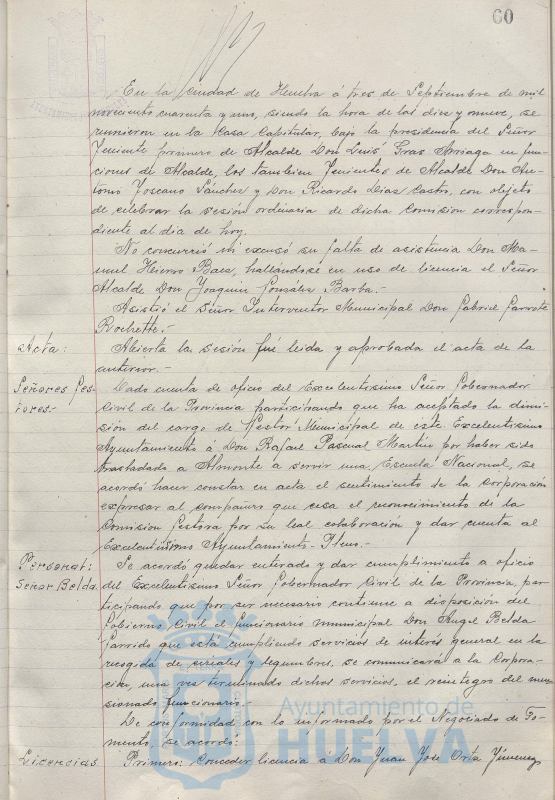 60
En la ciudad de Huelva á tres de Septiembre de mil
novecientos cuarenta y uno, siendo la hora de las diez y nueve, se
reunieron en la Casa Capitular, bajo la presidencia del Señor
Teniente primero de Alcalde Don Luis Gras Arriaga en fun-
ciones de Alcalde, los tambien Tenientes de Alcalde Don An-
tonio Toscano Sánchez y Don Ricardo Dias Castro, con objeto
de celebrar la sesión ordinaria de dicha Comision correspon-
diente al dia de hoy.
No concurrió ni excusó su falta de asistencia Don Ma-
nuel Hierro Baez, hallándose en uso de licencia el Señor
Alcalde Don Joaquin González Barba.-
Asistió el Señor Interventor Municipal Don Gabriel Garrote
Rochette.-
Acta: Abierta la sesión fué leida y aprobada el acta de la
anterior.-
Señores Ges- Dada cuenta de oficio del Excelentísimo Señor Gobernador
tores.- Civil de la Provincia participando que ha aceptado la dimi-
sión del cargo de Gestor Municipal de este Excelentísimo
Ayuntamiento á Don Rafael Pascual Martín por haber sido
trasladado a Almonte a servir una Escuela Nacional, se
acordó hacer constar en acta el sentimiento de la Corporación
expresar al compañero que cesa el reconocimiento de la
Comision Gestora por su leal colaboración y dar cuenta al
Excelentísimo Ayuntamiento Pleno.-
Personal: Se acordó quedar enterado y dar cumplimiento a oficio
Señor Belda. del Excelentísimo Señor Gobernador Civil de la Provincia, par-
ticipando que por ser necesario continue a disposición del
Gobierno Civil el funcionario municipal Don Angel Belda
Garrido que está cumpliendo servicios de interés general en la
recogida de cereales y legumbres, se comunicará a la Corpora-
ción, una vez terminado dichos servicios, el reintegro del men-
sionado funcionario.-
De conformidad con lo informado por el Negociado de Fo-
mento, se acordó:
Licencias Primero: Conceder licencia á Don Juan José Orta Jimenez
Ayuntamiento de
HUELVA